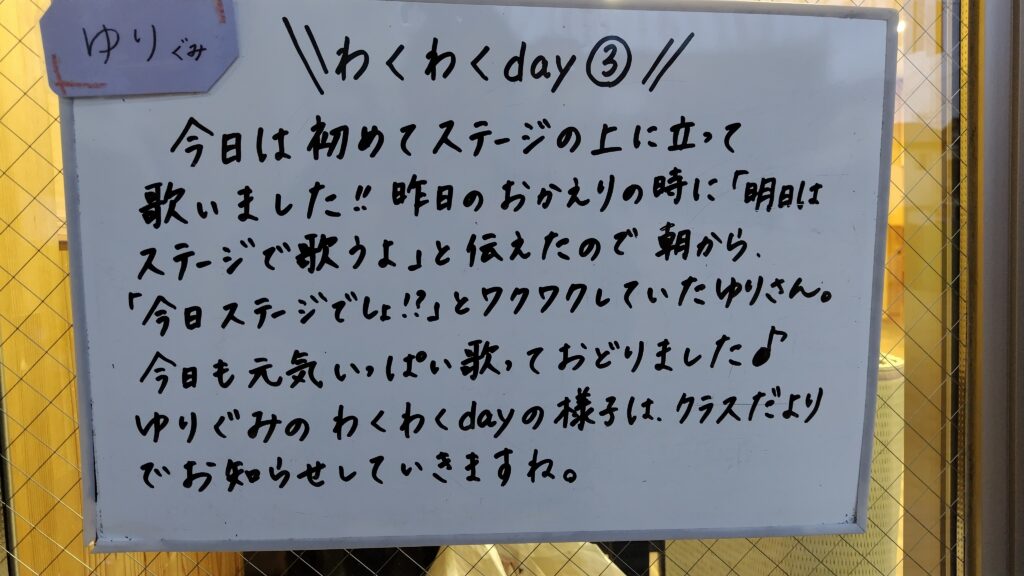 ゆりぐみ
\\わくわくday③//
今日は初めてステージの上に立って
歌いました!!昨日のおかえりの時に「明日は
ステージで歌うよ」と伝えたので朝から、
「今日ステージでしょ!?」とワクワクしていたゆりさん。
今日も元気いっぱい歌っておどりました♪
ゆりぐみのわくわくdayの様子は、クラスだより
でお知らせしていきますね。